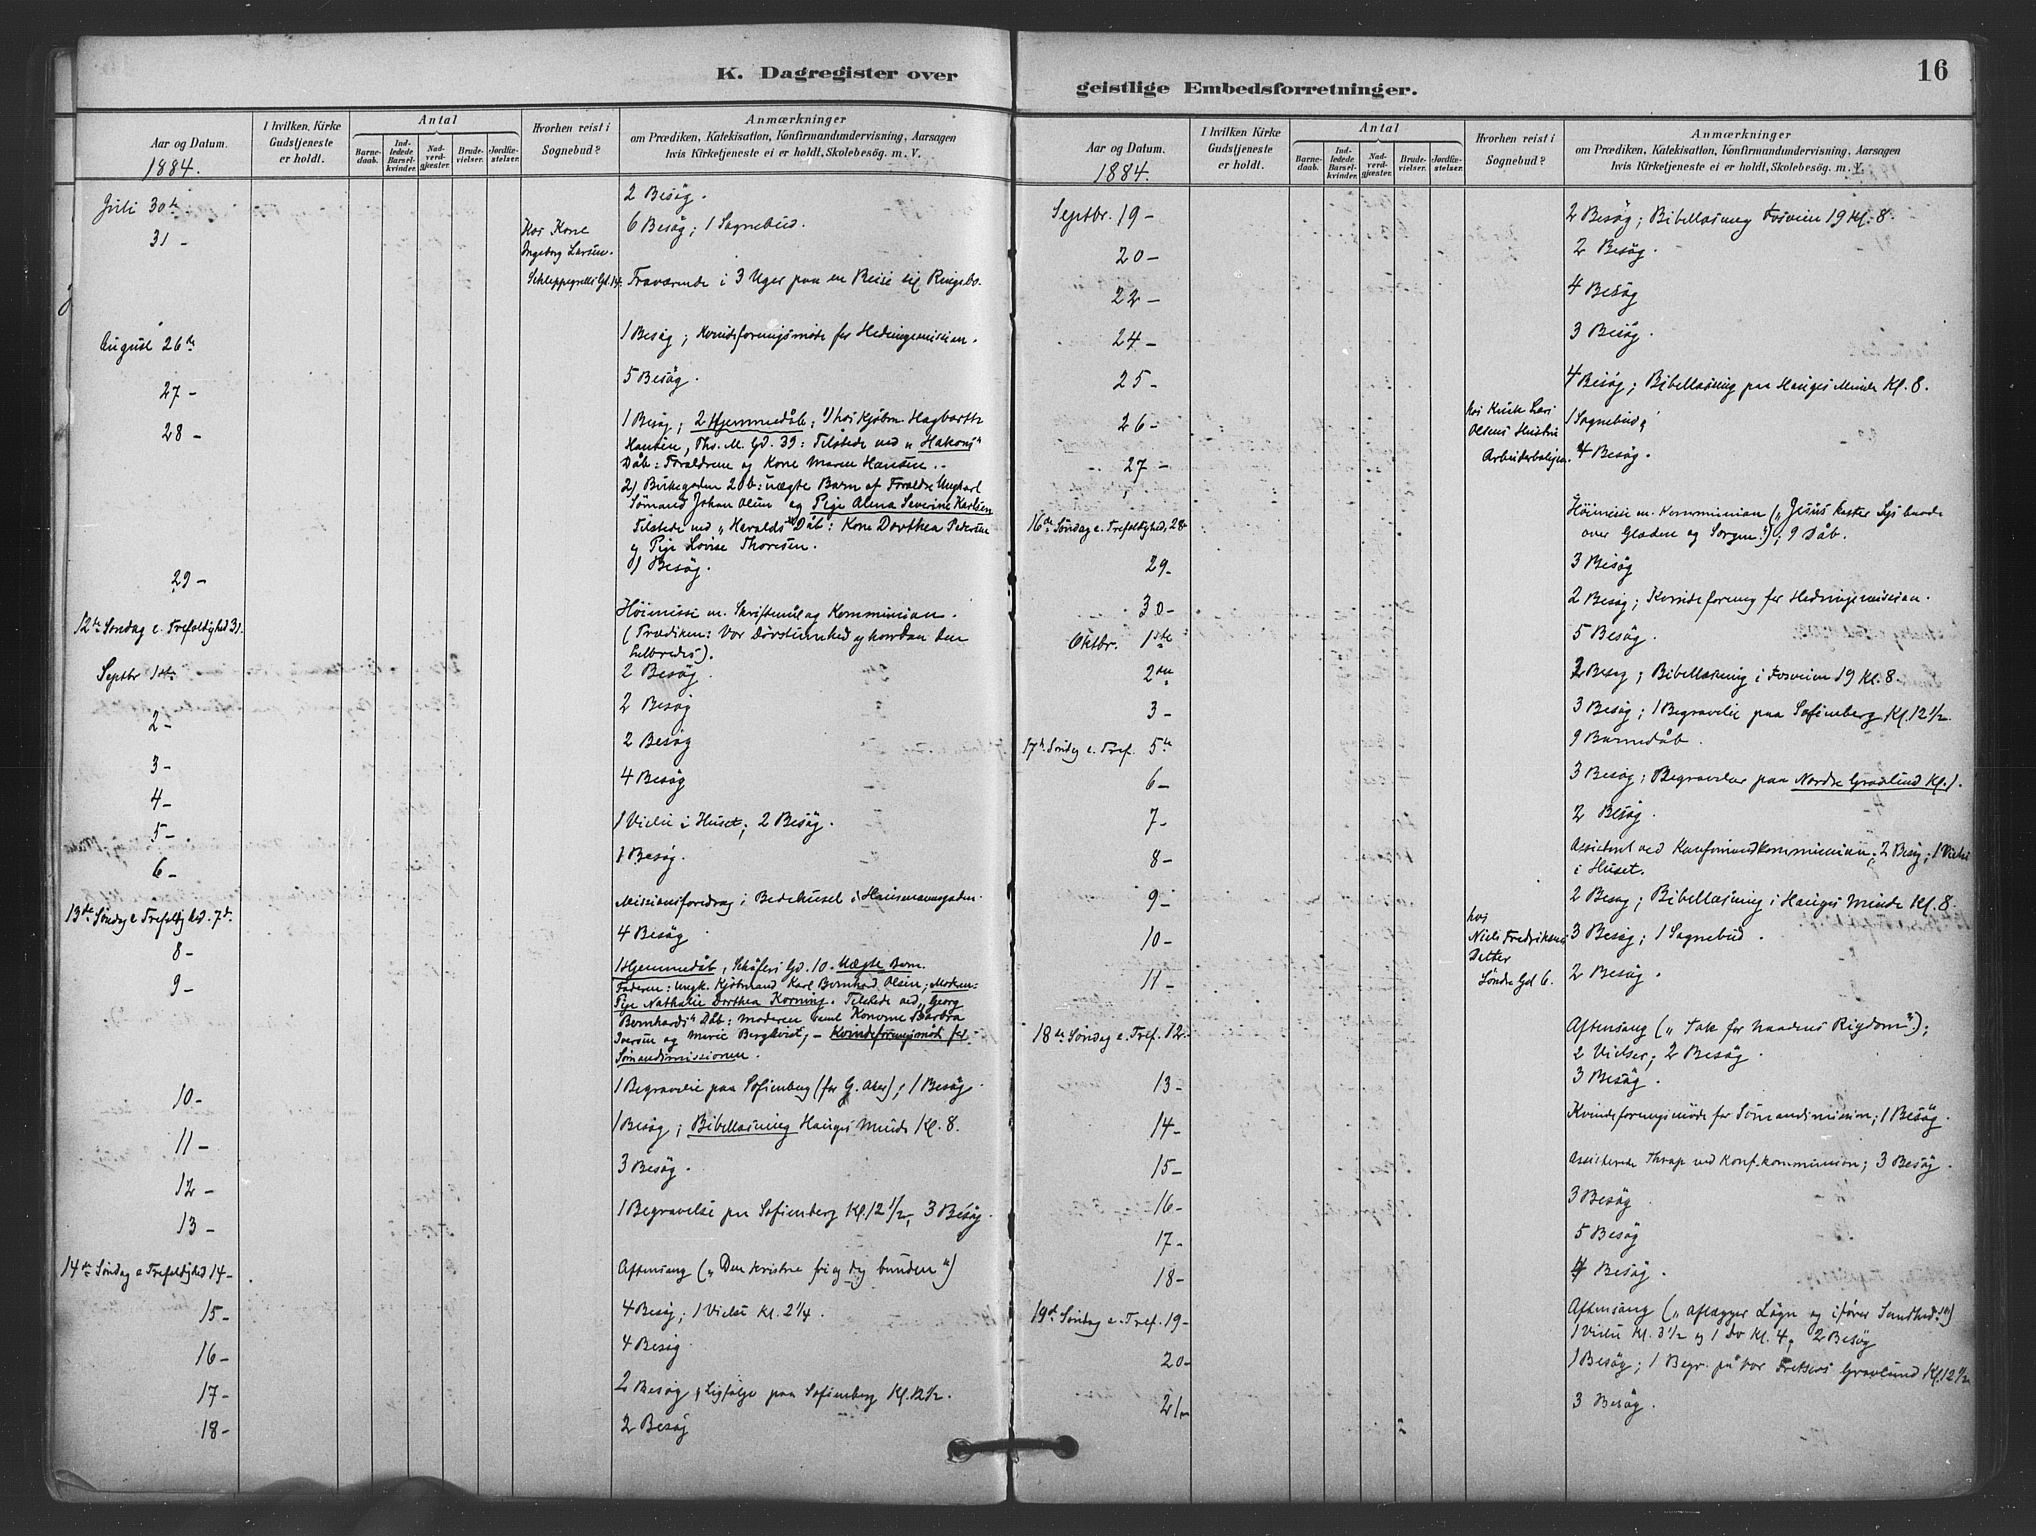 K. Dagregister over
Aar og Datum.
1884.
I hvilken Kirke
Gudstjeneste
er holdt.
Antal
Barne-
daab.
Ind-
ledede
Barsel-
kvinder.
Nad-
verd-
gjæster.
Brude-
vielser.
Jordfæ-
stelser.
Hvorhen reist i
Sognebud?
Anmærkninger
om Prædiken, Katekisation, Konfirmandundervisning, Aarsagen
hvis Kirketjeneste ei er holdt, Skolebesög m. V.
Juli 30te
2 Besög.
31 –
Hos Kone
Ingeborg Larsen
Schleppegrells Gd. 14.
6 Besög; 1 Sognebud.
Fraværende i 3 Uger paa en Reise til Ringebo.
August 26de
1 Besög; Kvindeforeningsmöde for Hedningemission.
27 –
5 Besög.
28 –
1 Besög; 2 Hjemmedåb; 1) hos Kjöbm. Hagbarth
Hansen, Ths. M. Gd. 39: Tilstede ved „Hakons"
Dåb: Forældrene og Kone Maren Hansen.
2) Birkegaden 20b: uægte Barn af Forældre Ungkarl
Sömand Johan Olsen og Pige Alma Severine Karlsen
Tilstede ved „Haralds" Dåb: Kone Dorthea Pedersen
og Pige Lovise Thoresen.
29 –
1 Besög.
12te Söndag e. Trefoldighed 31.
Höimesse m. Skriftemål og Kommunion.
(Prædiken: Vor Dövstumhed og hvordan den
helbredes).
Septbr 1ste
2 Besög.
2 –
2 Besög
3 –
2 Besög
4 –
4 Besög
5 –
1 Vielse i Huset; 2 Besög.
6 –
1 Besög.
13de Söndag e Trefoldighed. 7de
Missionsforedrag i Bedehuset i Hausmannsgaden.
8 –
4 Besög
9 –
1 Hjemmedåb, Schäfers Gd. 10. Uægte Barn.
Faderen: Ungk. Kjötmand Karl Bernhard Olsen; Moderen:
Pige Nathalie Dorthea Korning. Tilstede ved „Georg
Bernhards" Dåb: Moderen samt Konerne Barbra
Iversen og Marie Bergkvist, – Kvindeforeningsmöde for
Sömandsmissionen.
10 –
1 Begravelse paa Sofienberg (for G. Aker); 1 Besög.
11 –
1 Besög; Bibellæsning Hauges Minde Kl. 8.
12 –
3 Besög.
13 –
1 Begravelse paa Sofienberg Kl. 12 1/2, 3 Besög.
14de Söndag e Trefoldighed 14 –
Aftensang („Den kristne fri og dog bunden")
15 –
4 Besög; 1 Vielse Kl. 2 1/4.
16 –
4 Besög
17 –
2 Besög, Ligfölge paa Sofienberg Kl. 12 1/2.
18 –
2 Besög
geistlige Embedsforretninger.
16
Aar og Datum.
1884.
I hvilken Kirke
Gudstjeneste
er holdt.
Antal
Barne-
daab.
Ind-
ledede
Barsel-
kvinder.
Nad-
verd-
gjæster.
Brude-
vielser.
Jordfæ-
stelser.
Hvorhen reist i
Sognebud?
Anmærkninger
om Prædiken, Katekisation, Konfirmandundervisning, Aarsagen
hvis Kirketjeneste ei er holdt, Skolebesög m. V.
Septbr. 19 –
2 Besög; Bibellæsning Fosveien 19 Kl. 8.
20 –
2 Besög.
22 –
4 Besög
24 –
3 Besög.
25 –
4 Besög; Bibellæsning paa Hauges Minde Kl. 8.
26 –
hos Kusk Lars
Olsens Hustru
Arbeiderboligen.
1 Sognebud;
27 –
4 Besög.
16de Söndag e. Trefoldighed, 28.
Höimesse m. Kommunion („Jesus kaster Lys baade
over Glæden og Sorgen."); 9 Dåb.
29 –
3 Besög
30 –
2 Besög; Kvindeforening for Hedningemission.
Oktbr. 1ste
5 Besög.
2den
2 Besög; Bibellæsning i Fosveien 19 Kl. 8.
3 –
3 Besög; 1 Begravelse paa Sofienberg Kl. 12 1/2.
17de Söndag e. Tref. 5te
9 Barnedåb.
6 –
3 Besög; Begravelse paa Nordre Gravlund Kl. 1.
7 –
2 Besög.
8 –
Assisteret ved Konfirmandkommunion; 2 Besög; 1 Vielse
i Huset.
9 –
2 Besög; Bibellæsning i Hauges Minde Kl. 8.
10 –
hos
Niels Fredriksens
Datter
Söndre Gd 6.
3 Besög; 1 Sognebud.
11 –
2 Besög.
18de Söndag e. Tref. 12.
Aftensang („Tak for Naadens Rigdom");
2 Vielser; 2 Besög.
13 –
3 Besög.
14 –
Kvindeforeningsmöde for Sömandsmission; 1 Besög.
15 –
Assisterede Thrap ved Konf.kommunion; 3 Besög.
16 –
3 Besög
17 –
5 Besög
18 –
4 Besög.
19de Söndag e. Tref. 19 –
Aftensang („Aflægger Lögn og iförer Sandhed!")
1 Vielse Kl. 3 1/2 og 1 do Kl. 4, 2 Besög
20 –
1 Besög; 1 Begr. på Vor Frelsers Gravlund Kl. 12 1/2
21 –
3 Besög.